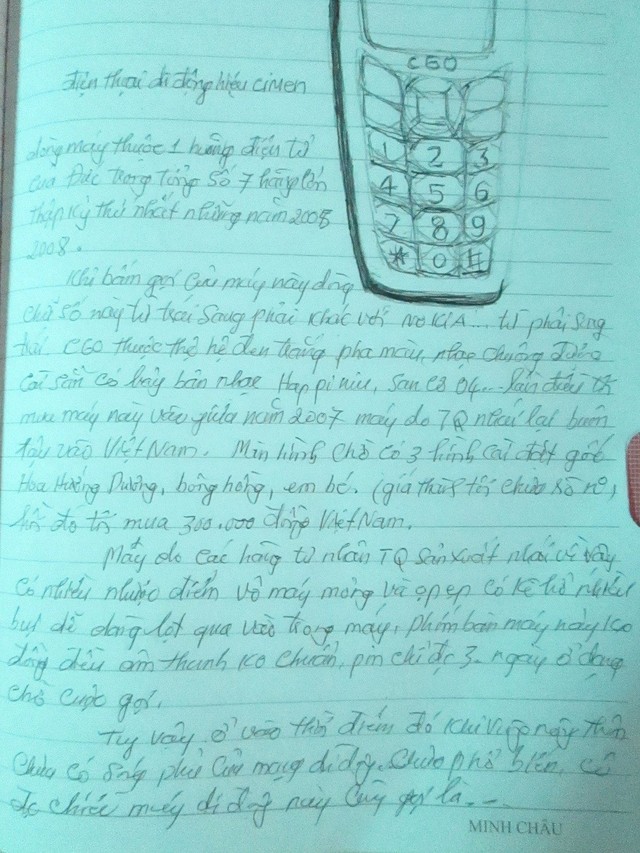 C60
điện thoại di động hiệu Cimen
1 2 3
4 5 6
7 8 9
* 0 #
dòng máy thuộc 1 hãng điện tử
của Đức trong tổng số 7 hãng lớn
thập kỷ thứ nhất những năm 2008
2008.
Khi bấm gọi của máy này dòng
chữ số này từ trái sang phải khác với NOKIA... từ phải sang
trái C60 thuộc thế hệ đen trắng pha màu, nhạc chuông
cài sẵn có bảy bản nhạc Happi niu, 04... lần đầu tôi
mua máy này vào giữa năm 2007 máy do TQ nhái lại buôn
lậu vào Việt Nam. Màn hình chờ có 3 hình cài đặt gốc
Hoa Hướng Dương, bông hồng, em bé. (giá thực tôi chưa rõ nó,
hồi đó tôi mua 300.000 đồng Việt Nam.
Máy do các hãng tư nhân TQ sản xuất nhái vì vậy
có nhiều nhược điểm vỏ máy mỏng và ọp ẹp có kẽ hở nhiều
bụi dễ dàng lọt qua vào trong máy, phím bấm máy này ko
đồng đều âm thanh ko chuẩn, pin chỉ đc 3 ngày ở dạng
chờ cuộc gọi.
Tuy vậy ở vào thời điểm đó khi
chưa có sóng phủ của mạng di động chưa phổ biến, có
đc chiếc máy di động này cũng gọi là...
MINH CHÂU